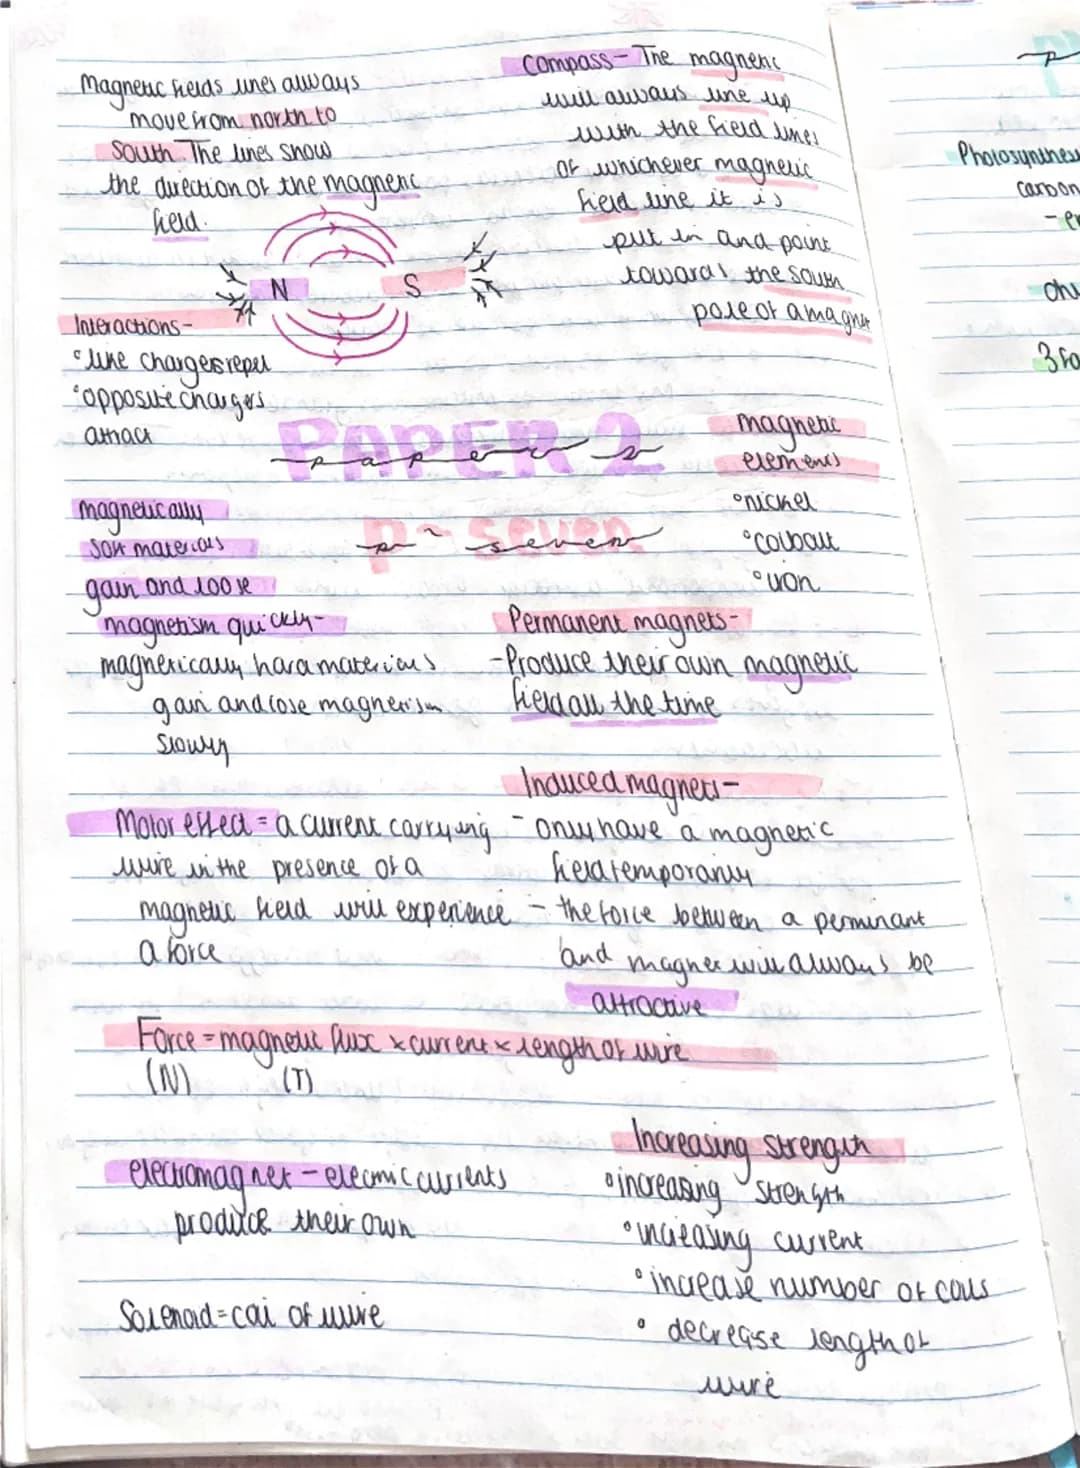 Magnetic fields lines always
move from north to
South. The lines show
the direction of the magnetic
field.
N S
Interactions-
°like chargers repel
°opposite chargers
attract
Compass - The magnetic
will always line up
with the field lines
of whichever magnetic
field line it is
put in and point
towards the south
pole of a magnet
PAPER 2
paper 2
P- seven
p - seven
magnetic
elements
°nickel
°colbalt
°iron
magnetically
soft materials
gain and loose
magnetism quickly-
magnetically hard materials
gain and lose magnetism
slowly
Permanent magnets-
-Produce their own magnetic
field all the time
Induced magnets-
- only have a magnetic
field temporarily
- the force between a perminant
and magnet will always be
attractive
Motor effect = a current carrying
wire in the presence of a
magnetic field will experience
a force
Force = magnetic flux x current x length of wire
(N) (T)
electromagnet - electric currents
produce their own
Solenoid = coil of wire
Increasing strength
°increasing strength
°increasing current
°increase number of coils
° decrease length of
wire
Photosynthes
carbon
3 fo